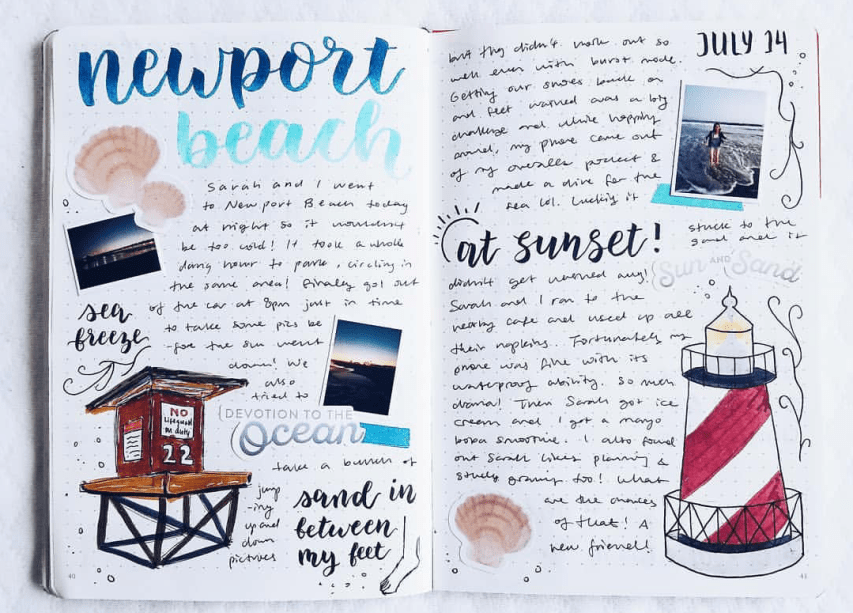 newport
beach
Sarah and I went
to Newport Beach today
at night so it wouldn't
be too cold! It took a whole
dang hour to park, circling in
the same area! Finally got out
of the car at 8pm just in time
to take some pics be
-for the sun went
down! We
also
tried to
sea
breeze
NO
lifeguard
on duty
22
{DEVOTION TO THE
Ocean}
take a bunch of
jump
-ing
up and
down
pictures
sand in
between
my feet
40
JULY 14
but they didn't work out so
well even with burst mode.
Getting our shoes back on
and feet washed was a big
challenge and while hopping
around, my phone came out
of my overalls pocket &
made a dive for the
sea lol. Luckily it
at sunset!
stuck to the
sand and it
{Sun AND Sand}
didn't get washed away!
Sarah and I ran to the
nearby cafe and used up all
their napkins. Fortunately my
phone was fine with its
waterproof ability. So much
drama! Then Sarah got ice
cream and I got a mango
boba smoothie. I also found
out Sarah likes planning &
study grams too! What
are the chances
of that! A
new friend!
41